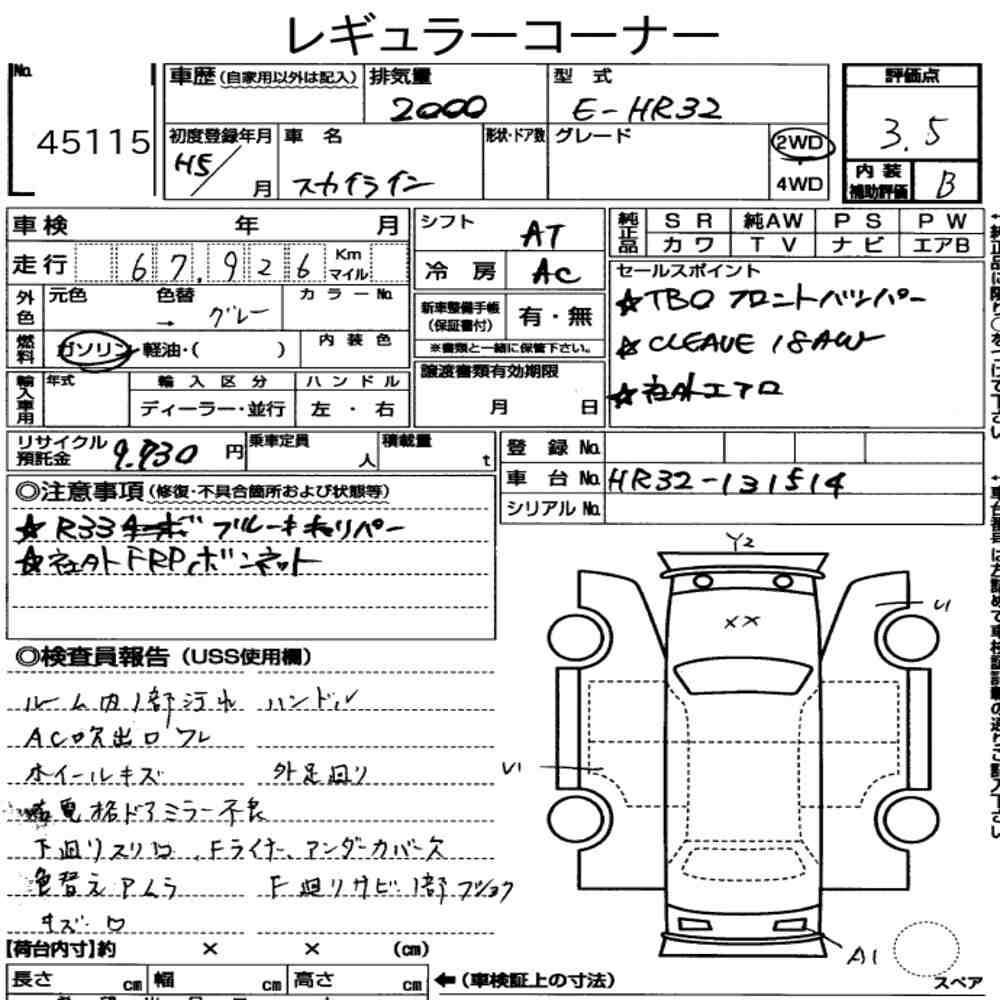 レギュラーコーナー
No.
45115
車歴(自家用以外は記入)
排気量
2000
型 式
E-HR32
評価点
3.5
初度登録年月
H5/
月
車 名
スカイライン
形状・ドア数
グレード
2WD
4WD
内装
補助評価
B
車検 年 月
走行 67,926 Km
マイル
外色
元色 色替
→ グレー
カラーNo.
燃料
ガソリン・軽油・( )
内装色
輸入車用
年式
輸入区分
ディーラー・並行
ハンドル
左・右
シフト
AT
冷房
AC
新車整備手帳
(保証書付)
有・無
※書類と一緒に保管下さい。
譲渡書類有効期限
月 日
純正品
SR 純AW PS PW
カワ TV ナビ エアB
セールスポイント
☆TBO フロントバンパー
☆CLEAVE 18AW
☆社外エアロ
リサイクル
預託金
9.930 円
乗車定員
人
積載量
t
登録No.
車台No. HR32-131514
シリアルNo.
◎注意事項(修復・不具合箇所および状態等)
☆R33ターボ ブレーキキャリパー
☆社外FRPボンネット
◎検査員報告(USS使用欄)
ルーム内1部汚れ ハンドル
AC吹出口 ワレ
ホイールキズ 外足回り
電格ドアミラー不良
下廻りスリ キズ、Fライナー、アンダーカバー欠
色替えアムラ F廻りサビ1部フショク
キズ・凹
Y2
XX
U1
U1
A1
スペア
【荷台内寸】約 × × (cm)
長さ cm 幅 cm 高さ cm ←(車検証上の寸法)